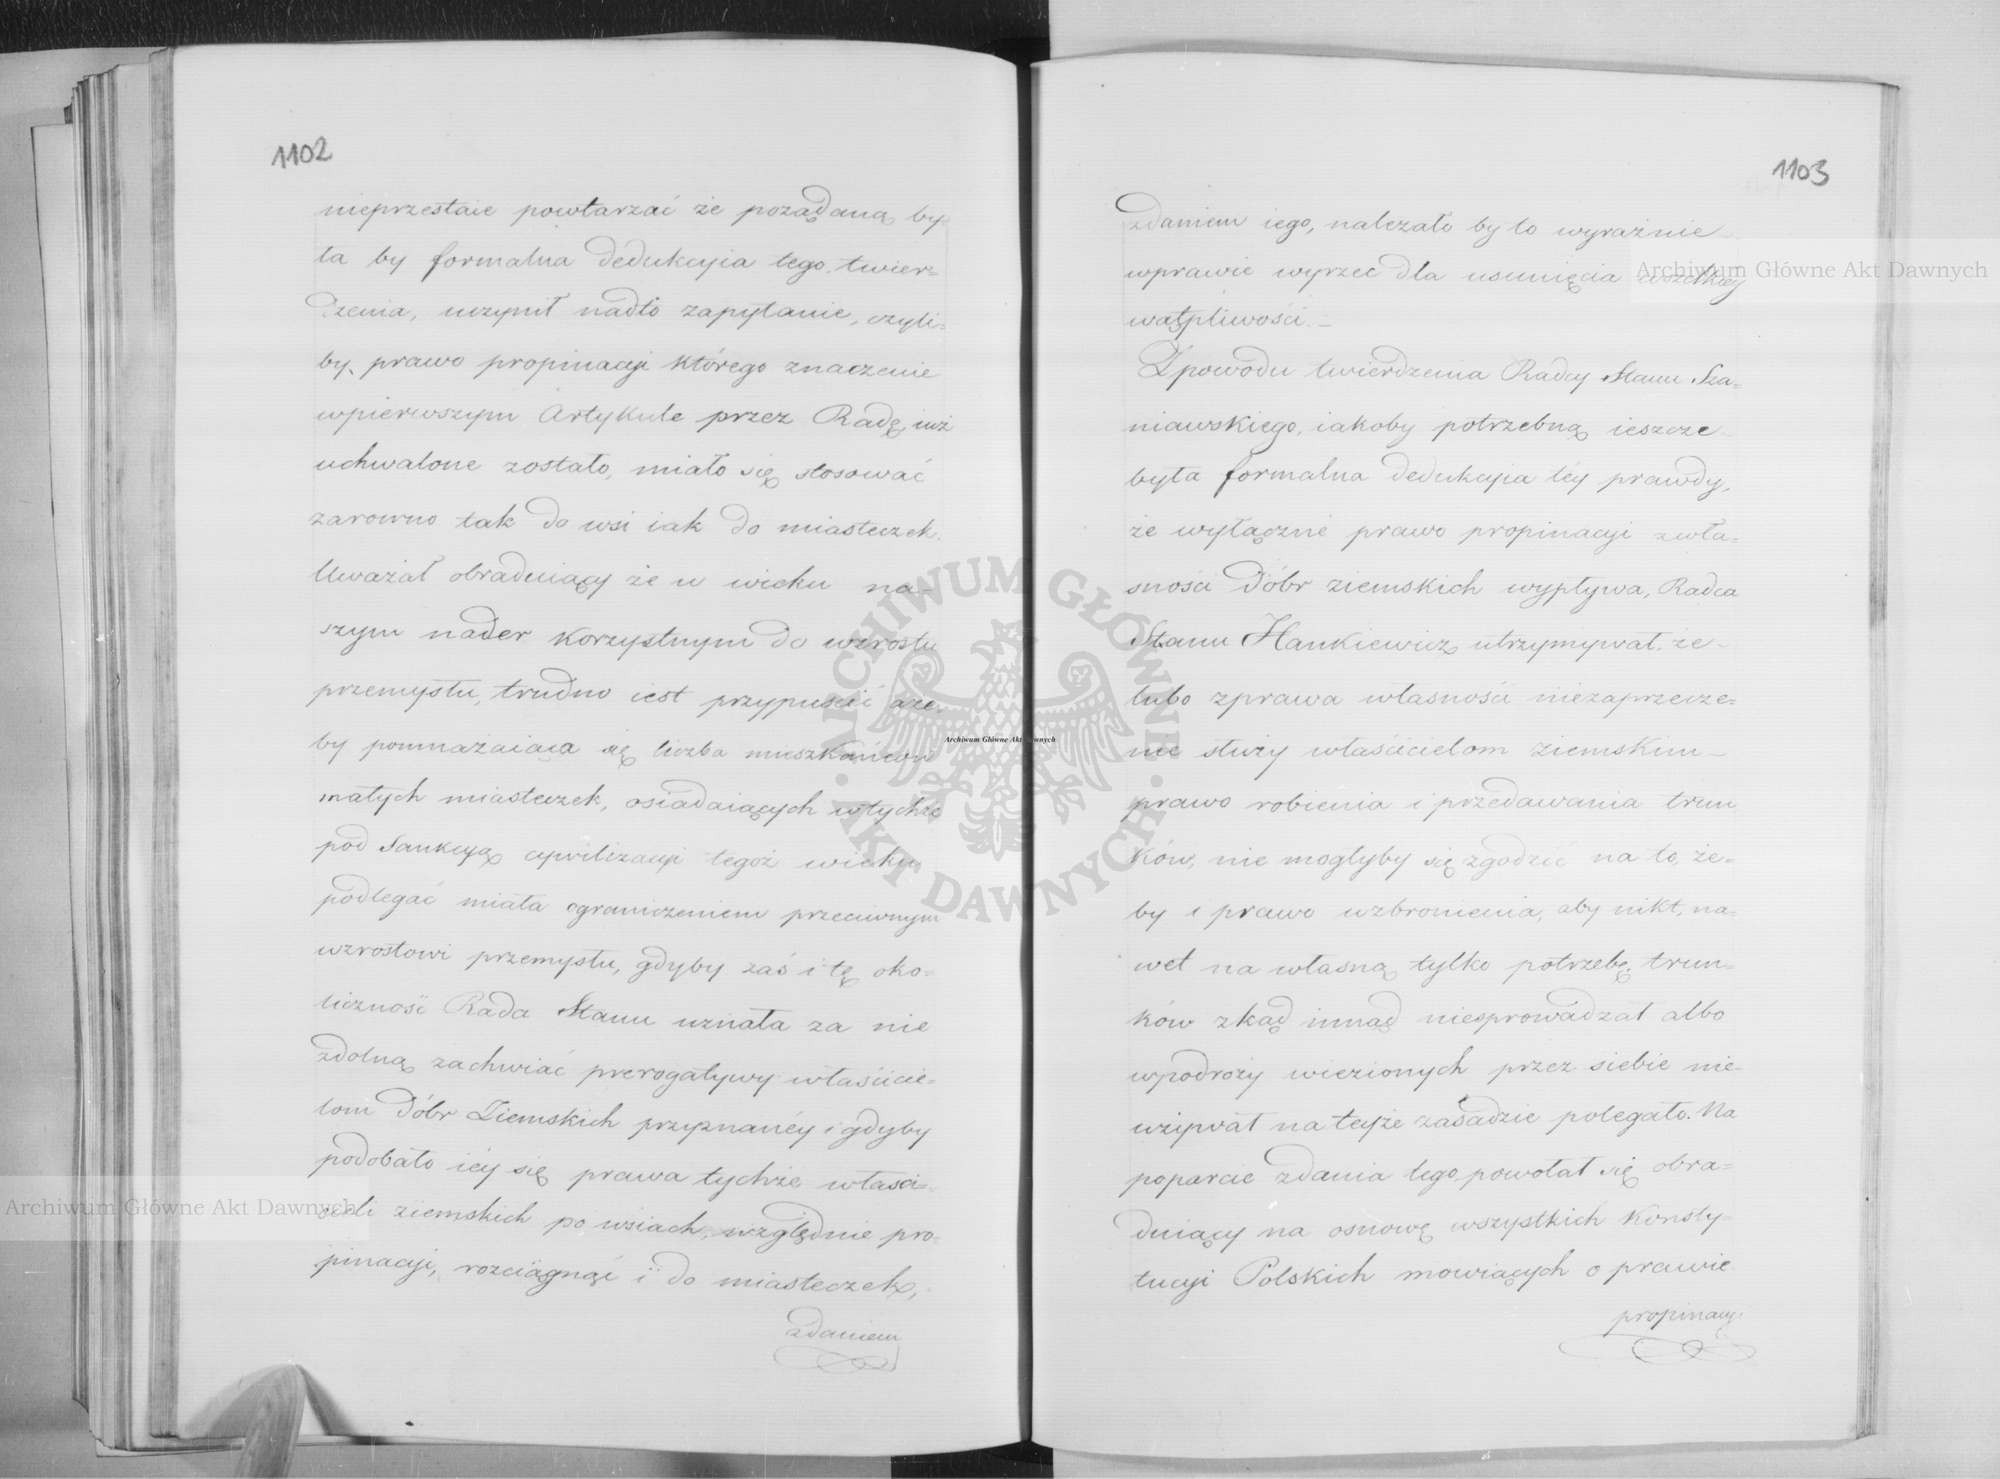 1102
nieprzestaie powtarzać że pożądaną by-
ła by formalna dedukcyia tego twier-
dzenia, uczynił nadto zapytanie, czyli-
by prawo propinacyi którego znaczenie
wpierwszym Artykule przez Radę iuż
uchwalone zostało, miało się stosować
zarowno tak do wsi iak do miasteczek.
Uważał obraduiący że w wieku na-
szym nader korzystnym do wzrostu
przemysłu, trudno iest przypuścić aże-
by pomnażaiąca się liczba mieszkańców
małych miasteczek, osiadaiących wtychże
pod Sankcyą cywilizacyi tegoż wieku
podlegać miała ograniczeniom przeciwnym
wzrostowi przemysłu, gdyby zaś i tę oko-
liczność Rada Stanu uznała za nie
zdolną zachwiać prerogatywy właścicie-
lom Dóbr Ziemskich przyznanéy i gdyby
podobało iéy się prawa tychże właści-
cieli ziemskich po wsiach, względnie pro-
pinacyi, rozciągnąć i do miasteczek,
zdaniem
1103
zdaniem iego, należało by to wyraźnie
wprawie wyrzec dla usunięcia wszelkiey
wątpliwości. –
Z powodu twierdzenia Radcy Stanu Sza-
niawskiego, iakoby potrzebną ieszcze
była formalna dedukcyia téy prawdy,
że wyłącznie prawo propinacyi zwła-
sności Dóbr ziemskich wypływa, Radca
Stanu Hankiewicz utrzymywał, że
lubo zprawa własności niezaprzecze-
nie służy właścicielom ziemskim
prawo robienia i przedawania trun
ków, nie mogłyby się zgodzić na to, że-
by i prawo wzbronienia, aby nikt, na-
wet na własną tylko potrzebę, trun-
ków zkąd innąd niesprowadzał albo
wpodroży wiezionych przez siebie nie-
używał na teyże zasadzie polegało. Na
poparcie zdania tego, powołał się obra-
duiący na osnowę wszystkich Konsty-
tucyi Polskich mowiących o prawie
propinacyi
Archiwum Główne Akt Dawnych
Archiwum Główne Akt Dawnych
Archiwum Główne Akt Dawnych
ARCHIWUM GŁÓWNE AKT DAWNYCH